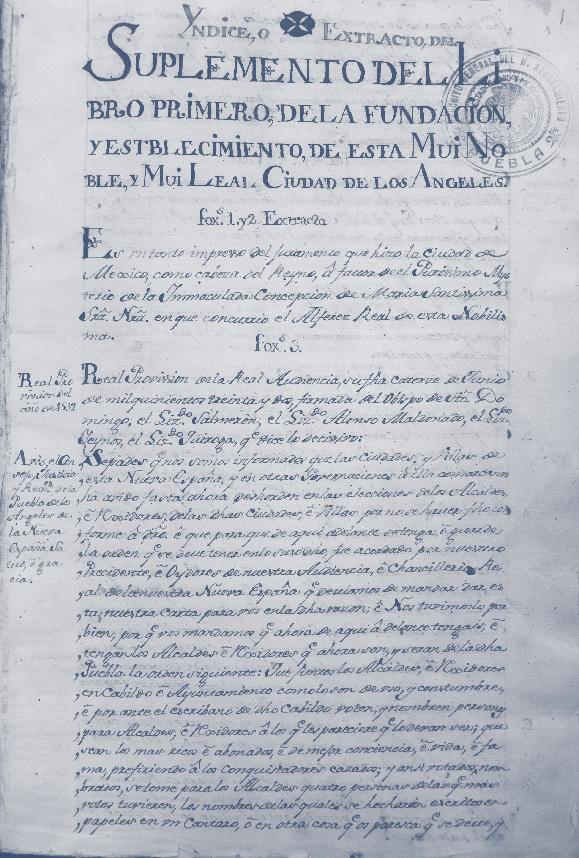 YNDICE, O EXTRACTO, DEL
SUPLEMENTO DEL LI-
BRO PRIMERO, DE LA FUNDACION,
Y ESTBLECIMIENTO, DE ESTA MUI NO-
BLE, Y MUI LEAL CIUDAD DE LOS ANGELES.
fox.s 1. y 2. Extracto
Es un tanto impreso del Juramento que hizo la Ciudad de
Mexico, como cabeza del Reyno, á favor de el Purisimo Mys-
terio de la Immaculada Concepcion de Maria Santissima
Srâ. Nrâ. en que concurrio el Alferez Real de esta Nobilis
ma.
fox.s 3.
Real Pro
vision del
año de 1532
Real Provision de la Real Audiencia, su fha catorce de Junio
de mil quinientos treinta y dos, firmada del Obispo de Stô. Do
mingo, el Lizdo Salmeron, el Lizdo Alonso Maldonado, el Lizdo
Ceynos, el Lizdo Quiroga, qe dice la decision:
Avis, el Con
sejo, Justicia
y Regs. de la
Puebla de los
Angeles de
la Nueva
España, Sa
lud, è gra
cia.
Sepades qe nos somos informados que las Ciudades, y Villas de
esta Nueva España, y en otras Governaciones â ella comarcanas
ha avido fasta ahora deshorden en las elecciones de los Alcaldes,
è Rexidores, de las dhas Ciudades, è Villas por no se haver fho co
forme â dro. è que para que de aqui adelante se tenga, è guarde
la orden qe se deve tener en lo suso dho, fue acordado por nuestro
Precidente, è Oydores de nuestra Audiencia, è Chancilleria Re
al de la nueva Nueva España qe deviamos de mandar dar es
ta, nuestra Carta para vos en la dha razon; è Nos tuvimoslo por
bien, por qe vos mandamos qe ahora de aqui â delante tengais, è
tengan los Alcaldes è Rexidores qe ahora son, y seran de la dha
Puebla la orden siguiente: Que juntos los Alcaldes, è Rexidores
en Cabildo è Ayuntamiento como lo son de uso, y costumbre,
è por ante el escribano de dho Cabildo voten, y nombren personas
para Alcaldes, è Rexidores â los qe les pareciere qe lo deven ser; que
sean los mas ricos è abonados, è de mejor conciencia, è vida, è fa
ma, prefiriendo â los Conquistadores casados; y ansi votados, nom
brados, se tome para los Alcaldes quatro personas de las qe mas
votos tuvieren, los nombres de las quales se hecharán escritos en
papeles en un Cantaro, ô en otra cosa qe os paresca qe se deve, y